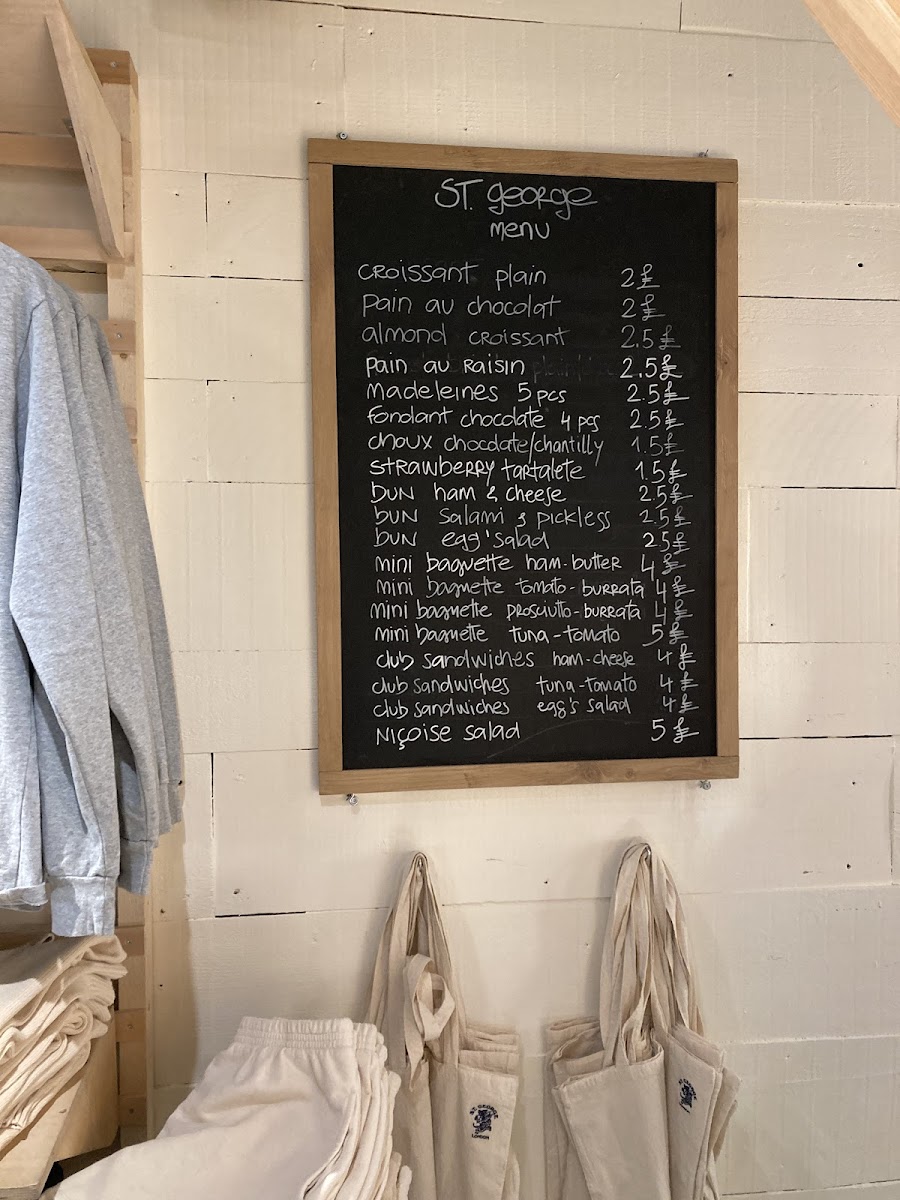 ST. george
menu
croissant plain 2£
pain au chocolat 2£
almond croissant 2.5£
pain au raisin 2.5£
madeleines 5pcs 2.5£
fondant chocolate 4 pcs 2.5£
choux chocolate/chantilly 1.5£
strawberry tartalete 1.5£
bun ham & cheese 2.5£
bun salami & pickless 2.5£
bun egg'salad 2.5£
mini baguette ham-butter 4£
mini baguette tomato-burrata 4£
mini baguette prosciutto-burrata 4£
mini baguette tuna-tomato 5£
club sandwiches ham-cheese 4£
club sandwiches tuna-tomato 4£
club sandwiches egg's salad 4£
Niçoise salad 5£
ST. GEORGE
LONDON
ST. GEORGE